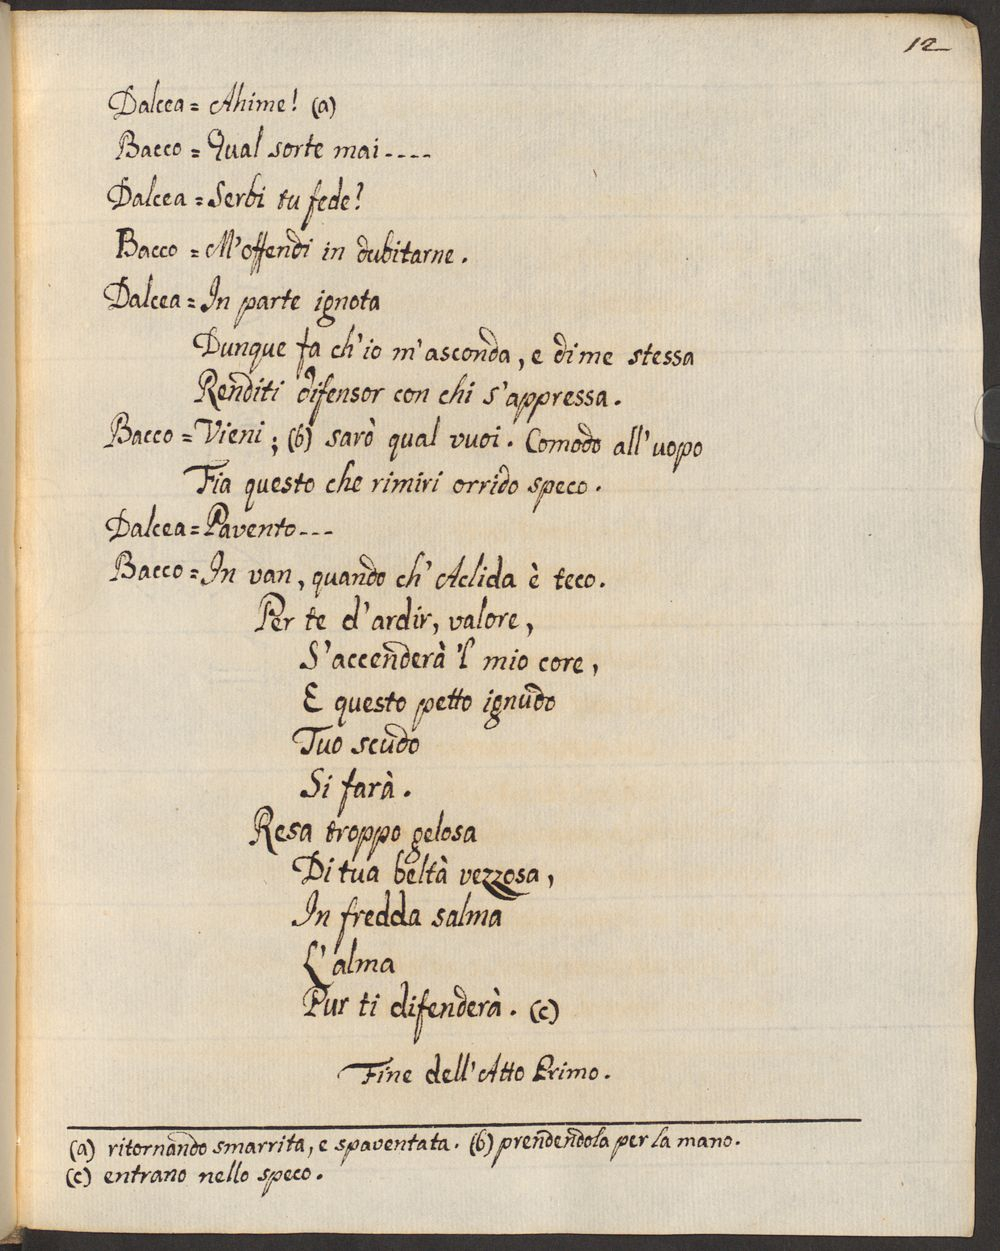 12
Dalcea = Ahime! (a)
Bacco = Qual sorte mai----
Dalcea = Serbi tu fede?
Bacco = M'offendi in dubitarne.
Dalcea = In parte ignota
Dunque fa ch'io m'asconda, e di me stessa
Renditi difensor con chi s'appressa.
Bacco = Vieni; (b) sarò qual vuoi. Comodo all'uopo
Fia questo che rimiri orrido speco.
Dalcea = Pavento---
Bacco = In van, quando ch'Aclida è teco.
Per te d'ardir, valore,
S'accenderà 'l mio core,
E questo petto ignudo
Tuo scudo
Si farà.
Resa troppo gelosa
Di tua beltà vezzosa,
In fredda salma
L'alma
Pur ti difenderà. (c)
Fine dell'Atto Primo.
(a) ritornando smarrita, e spaventata. (b) prendendola per la mano.
(c) entrano nello speco.